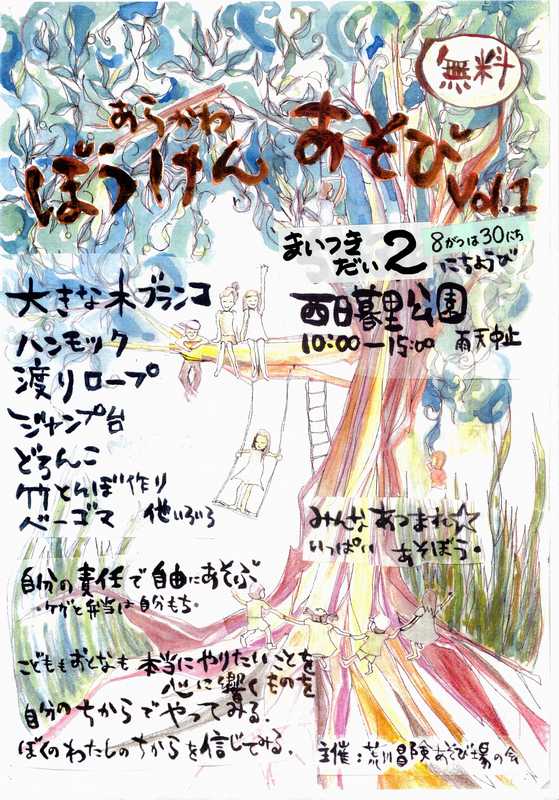 無料
あらかわ
ぼうけん あそび
Vol.1
まいつき
だい2 にちようび
8がつは30にち
西日暮里公園
10:00—15:00 雨天中止
大きな木ブランコ
ハンモック
渡りロープ
ジャンプ台
どろんこ
竹とんぼ作り
ベーゴマ 他いろいろ
みんなあつまれ☆
いっぱい あそぼう。
自分の責任で自由にあそぶ
・ケガと弁当は自分もち。
こどももおとなも 本当にやりたいことを
心に響くものを
自分のちからでやってみる。
ぼくのわたしのちからを信じてみる。
主催:荒川冒険あそび場の会